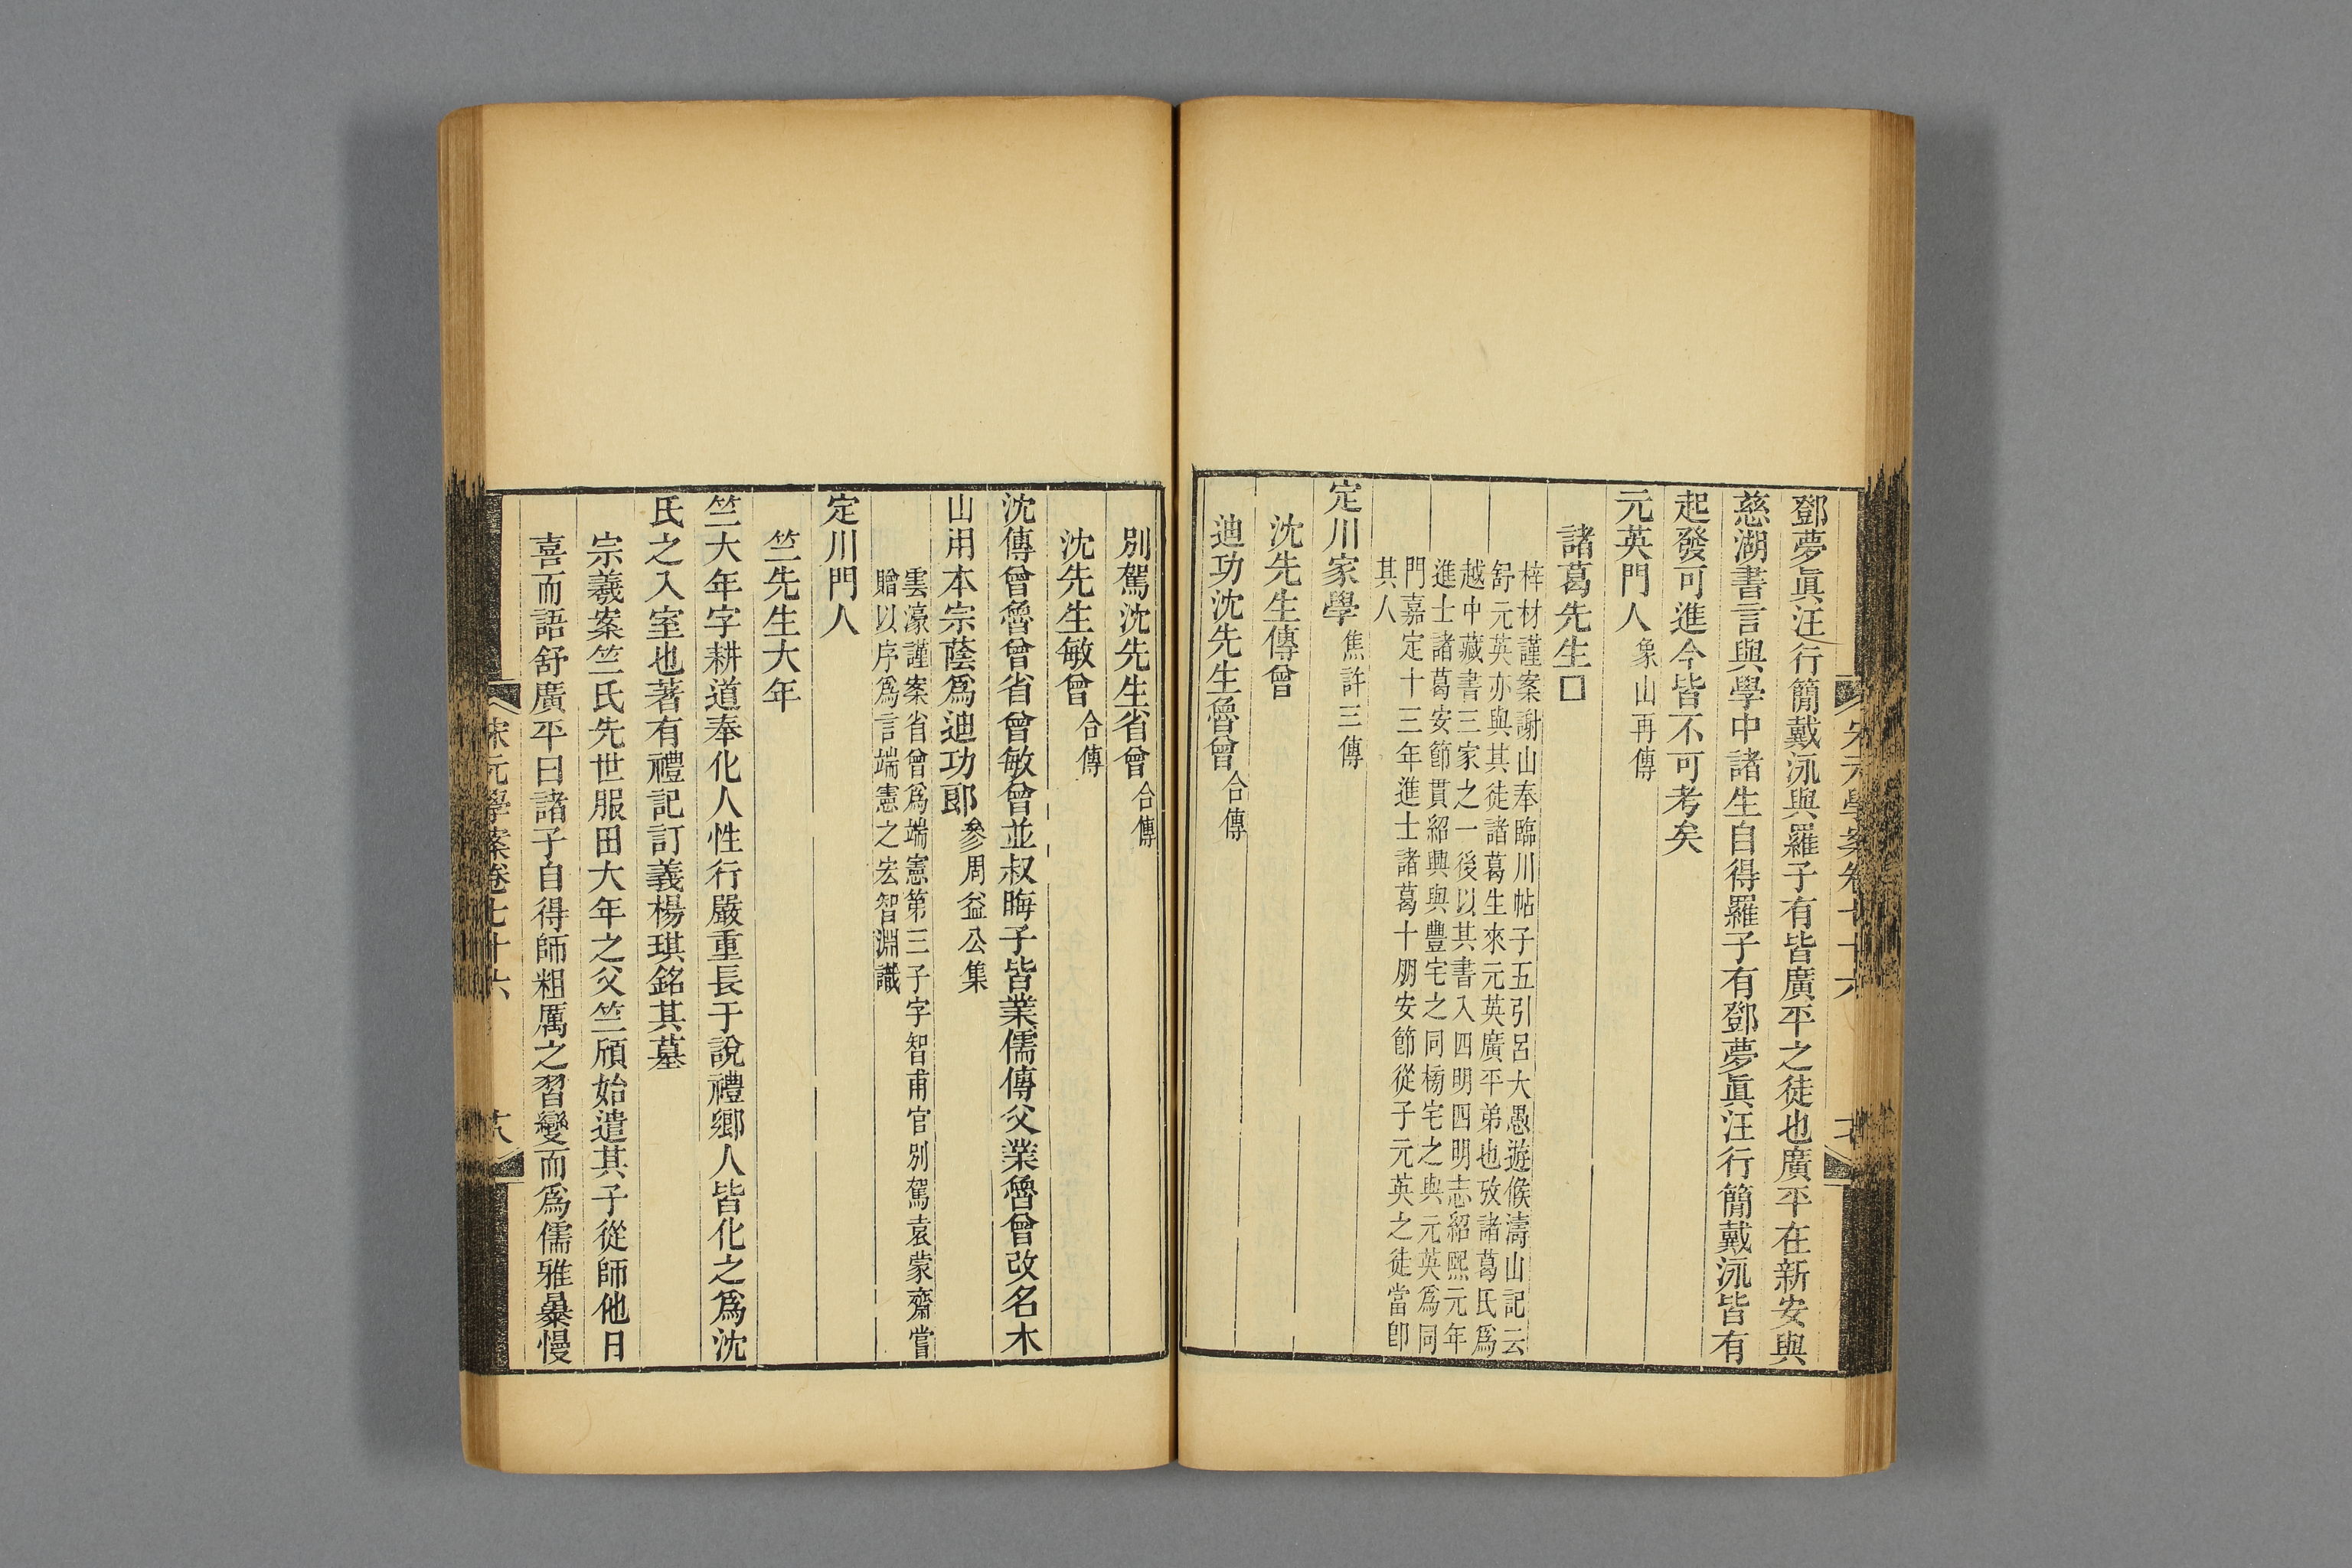 鄧夢眞汪行簡戴泳與羅子有皆廣平之徒也廣平在新安與
慈湖書言與學中諸生自得羅子有鄧夢眞汪行簡戴泳皆有
起發可進今皆不可考矣
元英門人象山再傳
諸葛先生□
梓材謹案謝山奉臨川帖子五引呂大愚遊候濤山記云
舒元英亦與其徒諸葛生來元英廣平弟也攷諸葛氏爲
越中藏書三家之一後以其書入四明四明志紹熙元年
進士諸葛安節貫紹興與豐宅之同榜宅之與元英爲同
門嘉定十三年進士諸葛十朋安節從子元英之徒當卽
其人
定川家學焦許三傳
沈先生傳曾
迪功沈先生魯曾合傳
別駕沈先生省曾合傳
沈先生敏曾合傳
沈傳曾魯曾省曾敏曾並叔晦子皆業儒傳父業魯曾改名木
山用本宗蔭爲迪功郎參周益公集
雲濠謹案省曾爲端憲第三子字智甫官別駕袁蒙齋嘗
贈以序爲言端憲之宏智淵識
定川門人
竺先生大年
竺大年字耕道奉化人性行嚴重長于說禮鄉人皆化之爲沈
氏之入室也著有禮記訂義楊琪銘其墓
宗羲案竺氏先世服田大年之父竺頎始遣其子從師他日
喜而語舒廣平曰諸子自得師粗厲之習變而爲儒雅暴慢
宋元學案卷七十六